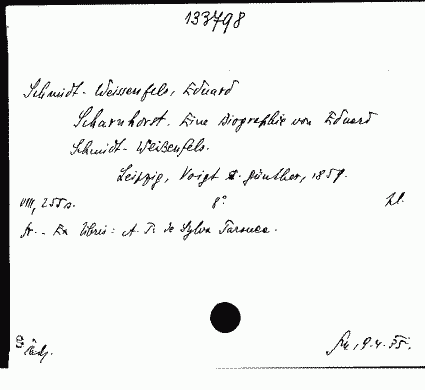 133798
Schmidt-Weissenfels, Eduard
Scharnhorst. Eine Biographie von Eduard
Schmidt-Weißenfels.
Leipzig, Voigt & Günther, 1859.
VIII, 255 S. 8°
Ex Libris: A. P. de Sylva Tarouca.
9.4.55.